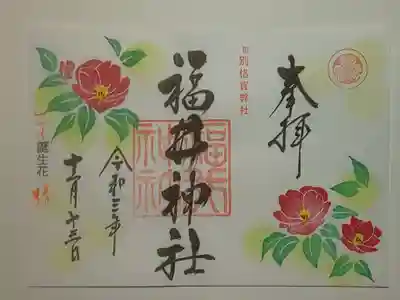 奉拝
別格官幣社
福井神社
令和三年
十一月十三日
誕生花